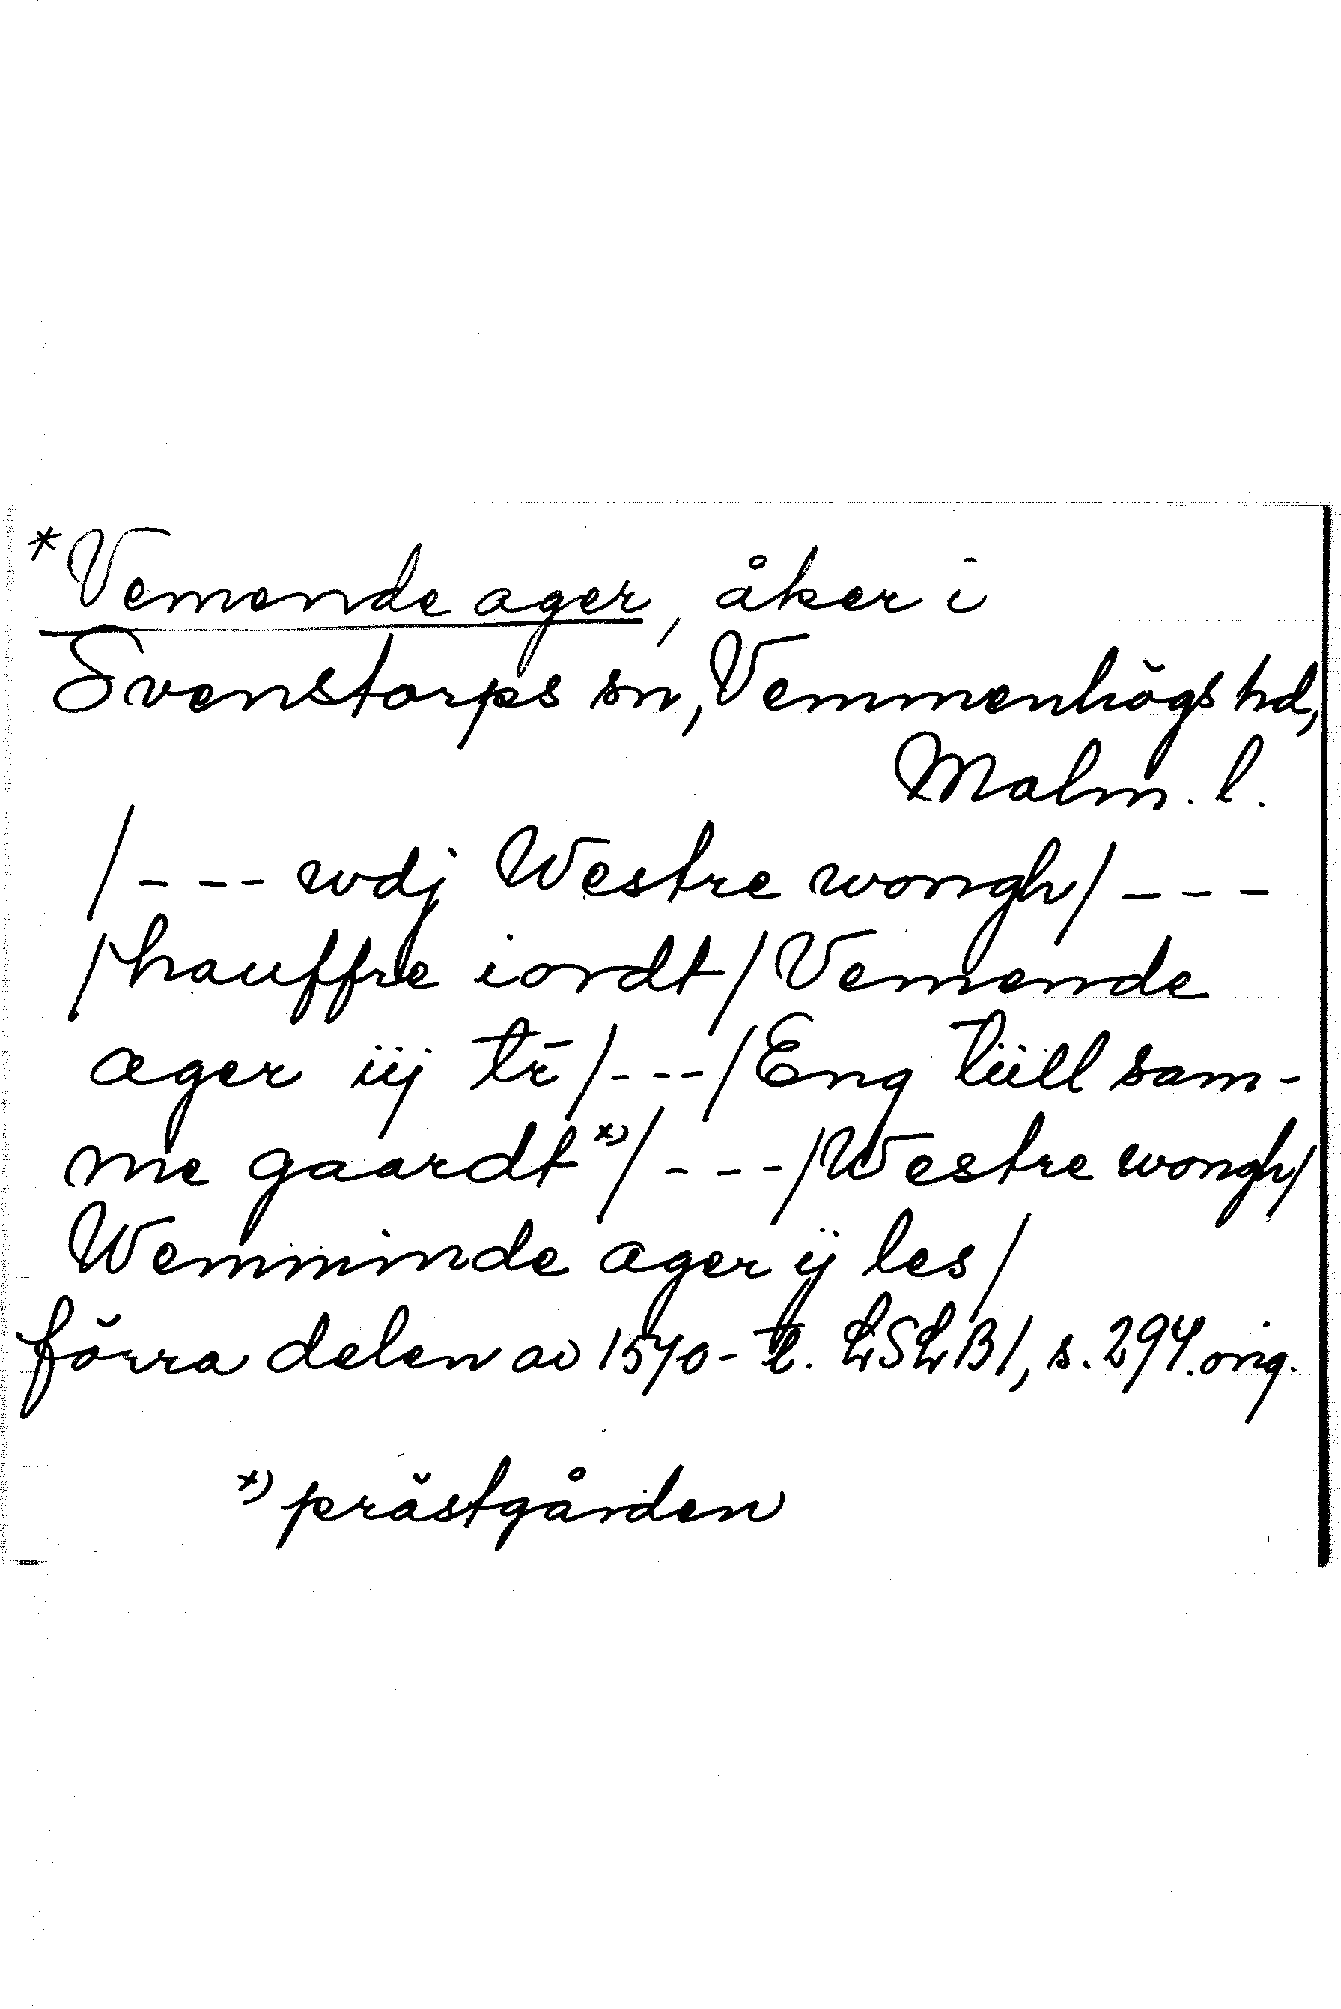 *Vemende ager, åker i
Svenstorps sn, Vemmenhögs hd,
Malm. l.
/--- wdj Westre wongh/ ---
/hauffre iordt/ Vemende
ager iij tr̄ /---/ Eng tüll sam-
me gaardt *) / ---/ Westre wongh/
Wemminde ager ij les/
förra delen av 1570-t. LSLB1, s. 294. orig.
*) prästgården